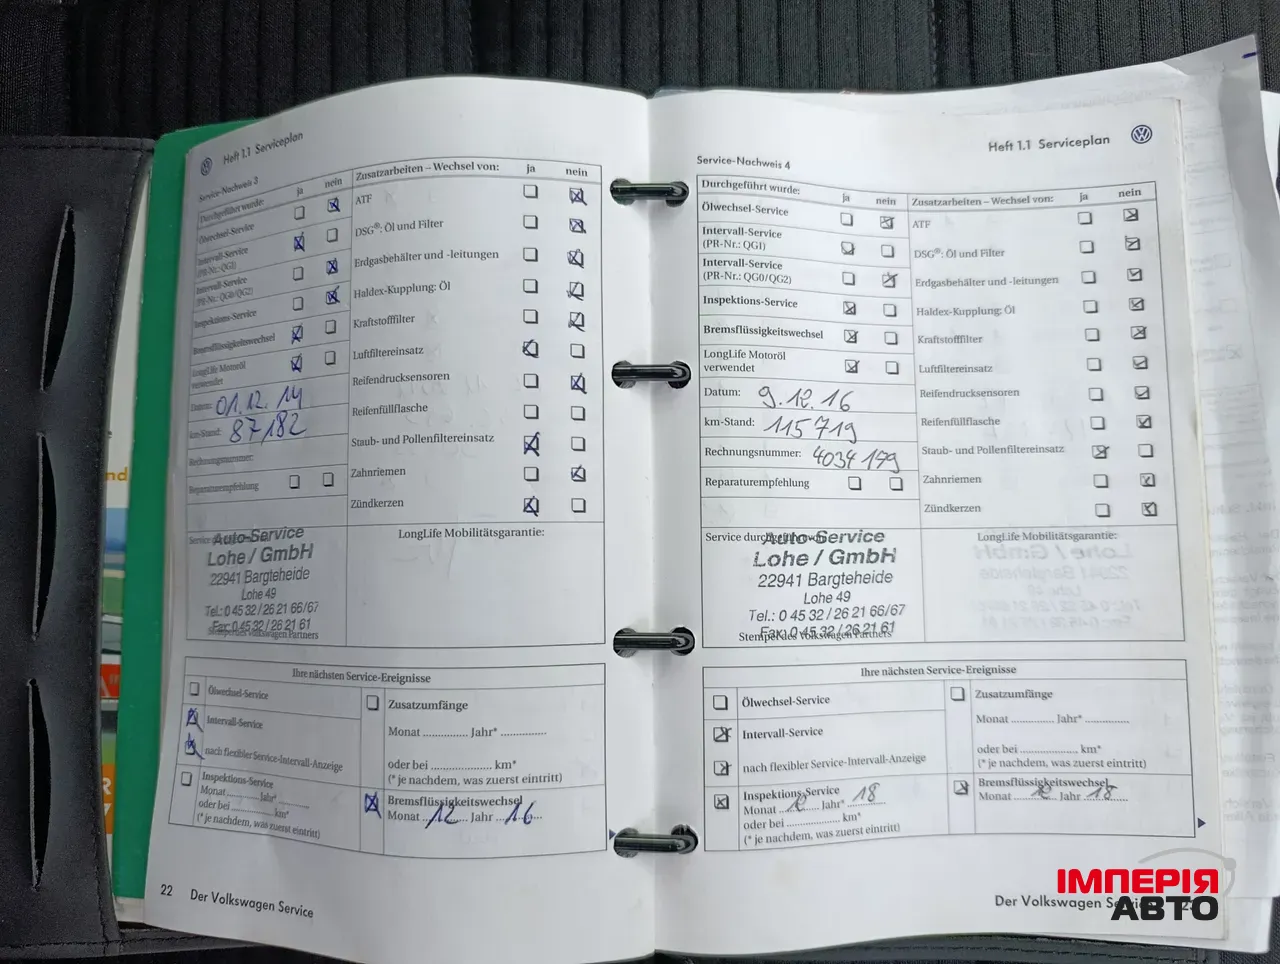 Heft 1.1 Serviceplan
Service-Nachweis 3
Durchgeführt wurde: ja nein
Ölwechsel-Service
Intervall-Service
(PR-Nr.: QG1)
Intervall-Service
(PR-Nr.: QG0/QG2)
Inspektions-Service
Bremsflüssigkeitswechsel
LongLife Motoröl
verwendet
Datum: 01.12.14
km-Stand: 87182
Rechnungsnummer:
Reparaturempfehlung
Zusatzarbeiten – Wechsel von: ja nein
ATF
DSG®: Öl und Filter
Erdgasbehälter und -leitungen
Haldex-Kupplung: Öl
Kraftstofffilter
Luftfiltereinsatz
Reifendrucksensoren
Reifenfüllflasche
Staub- und Pollenfiltereinsatz
Zahnriemen
Zündkerzen
Auto-Service
Lohe / GmbH
22941 Bargteheide
Lohe 49
Tel.: 0 45 32 / 26 21 66/67
Fax: 0 45 32 / 26 21 61
Stempel des Volkswagen Partners
LongLife Mobilitätsgarantie:
Ihre nächsten Service-Ereignisse
Ölwechsel-Service
Intervall-Service
nach flexibler Service-Intervall-Anzeige
Inspektions-Service
Monat ............ Jahr* ............
oder bei .................. km*
(* je nachdem, was zuerst eintritt)
Zusatzumfänge
Monat ............... Jahr* ...............
oder bei .................... km*
(* je nachdem, was zuerst eintritt)
Bremsflüssigkeitswechsel
Monat 12 Jahr 16
22 Der Volkswagen Service
Heft 1.1 Serviceplan
Service-Nachweis 4
Durchgeführt wurde: ja nein
Ölwechsel-Service
Intervall-Service
(PR-Nr.: QG1)
Intervall-Service
(PR-Nr.: QG0/QG2)
Inspektions-Service
Bremsflüssigkeitswechsel
LongLife Motoröl
verwendet
Datum: 9.12.16
km-Stand: 115719
Rechnungsnummer: 4034179
Reparaturempfehlung
Zusatzarbeiten – Wechsel von: ja nein
ATF
DSG®: Öl und Filter
Erdgasbehälter und -leitungen
Haldex-Kupplung: Öl
Kraftstofffilter
Luftfiltereinsatz
Reifendrucksensoren
Reifenfüllflasche
Staub- und Pollenfiltereinsatz
Zahnriemen
Zündkerzen
Service durchgeführt
Auto-Service
Lohe / GmbH
22941 Bargteheide
Lohe 49
Tel.: 0 45 32 / 26 21 66/67
Fax: 0 45 32 / 26 21 61
Stempel des Volkswagen Partners
LongLife Mobilitätsgarantie:
Ihre nächsten Service-Ereignisse
Ölwechsel-Service
Intervall-Service
nach flexibler Service-Intervall-Anzeige
Inspektions-Service
Monat 12 Jahr* 18
oder bei .................. km*
(* je nachdem, was zuerst eintritt)
Zusatzumfänge
Monat ............... Jahr* ...............
oder bei .................... km*
(* je nachdem, was zuerst eintritt)
Bremsflüssigkeitswechsel
Monat 12 Jahr 18
Der Volkswagen
ІМПЕРІЯ
АВТО